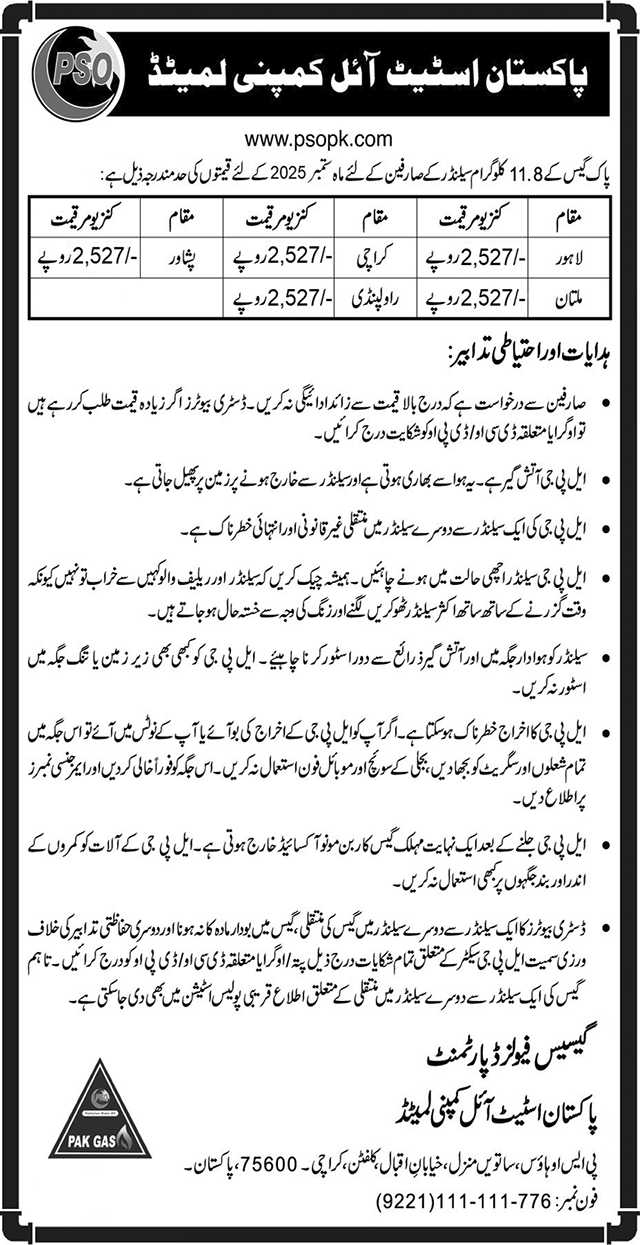 PSO
پاکستان اسٹیٹ آئل کمپنی لمیٹڈ
www.psopk.com
پاک گیس کے 11.8 کلوگرام سیلنڈر کے صارفین کے لئے ماہ ستمبر 2025 کے لئے قیمتوں کی حد مندرجہ ذیل ہے:
مقام کنزیومر قیمت مقام کنزیومر قیمت مقام کنزیومر قیمت
لاہور 2,527/- روپے کراچی 2,527/- روپے پشاور 2,527/- روپے
ملتان 2,527/- روپے راولپنڈی 2,527/- روپے
ہدایات اور احتیاطی تدابیر:
• صارفین سے درخواست ہے کہ درج بالا قیمت سے زائد ادائیگی نہ کریں۔ ڈسٹری بیوٹرز اگر زیادہ قیمت طلب کر رہے ہیں
تو اوگرا یا متعلقہ ڈی سی او/ ڈی پی او کو شکایت درج کرائیں۔
• ایل پی جی آتش گیر ہے۔ یہ ہوا سے بھاری ہوتی ہے اور سیلنڈر سے خارج ہونے پر زمین پر پھیل جاتی ہے۔
• ایل پی جی کی ایک سیلنڈر سے دوسرے سیلنڈر میں منتقلی غیر قانونی اور انتہائی خطرناک ہے۔
• ایل پی جی سیلنڈر اچھی حالت میں ہونے چاہئیں۔ ہمیشہ چیک کریں کہ سیلنڈر اور ریلیف والو کہیں سے خراب تو نہیں کیونکہ
وقت گزرنے کے ساتھ ساتھ اکثر سیلنڈر ٹھوکریں لگنے اور زنگ کی وجہ سے خستہ حال ہو جاتے ہیں۔
• سیلنڈر کو ہوادار جگہ میں اور آتش گیر ذرائع سے دور اسٹور کرنا چاہیئے۔ ایل پی جی کو کبھی بھی زیر زمین یا تنگ جگہ میں
اسٹور نہ کریں۔
• ایل پی جی کا اخراج خطرناک ہوسکتا ہے۔ اگر آپ کو ایل پی جی کے اخراج کی بو آئے یا آپ کے نوٹس میں آئے تو اس جگہ میں
تمام شعلوں اور سگریٹ کو بجھا دیں، بجلی کے سوئچ اور موبائل فون استعمال نہ کریں۔ اس جگہ کو فوراً خالی کردیں اور ایمرجنسی نمبرز
پر اطلاع دیں۔
• ایل پی جی جلنے کے بعد ایک نہایت مہلک گیس کاربن مونو آکسائیڈ خارج ہوتی ہے۔ ایل پی جی کے آلات کو کمروں کے
اندر اور بند جگہوں پر کبھی استعمال نہ کریں۔
• ڈسٹری بیوٹرز کا ایک سیلنڈر سے دوسرے سیلنڈر میں گیس کی منتقلی، گیس میں بودار مادہ کا نہ ہونا اور دوسری حفاظتی تدابیر کی خلاف
ورزی سمیت ایل پی جی سیکٹر کے متعلق تمام شکایات درج ذیل پتہ/ اوگرا یا متعلقہ ڈی سی او/ ڈی پی او کو درج کرائیں۔ تاہم
گیس کی ایک سیلنڈر سے دوسرے سیلنڈر میں منتقلی کے متعلق اطلاع قریبی پولیس اسٹیشن میں بھی دی جاسکتی ہے۔
گیسیس فیولز ڈپارٹمنٹ
پاکستان اسٹیٹ آئل کمپنی لمیٹڈ
PAK GAS
پی ایس او ہاؤس، ساتویں منزل، خیابانِ اقبال، کلفٹن، کراچی۔ 75600، پاکستان۔
فون نمبر: 776-111-111(9221)